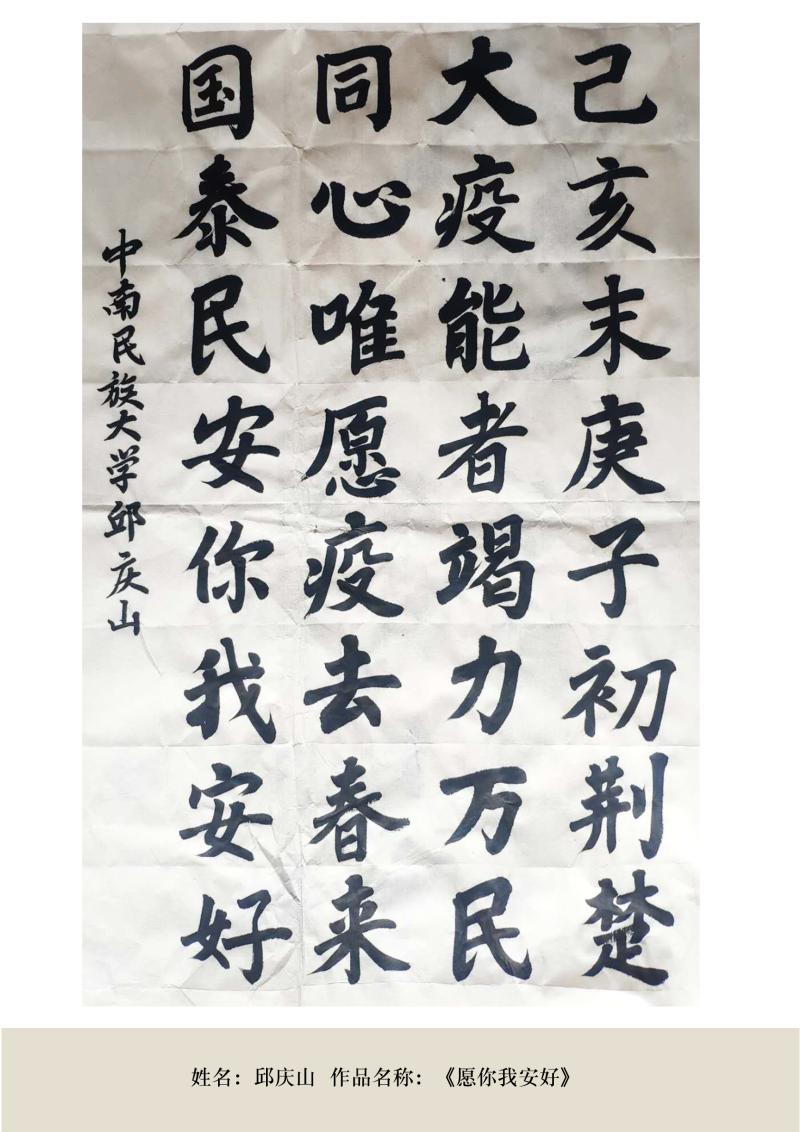 己亥末庚子初荆楚
大疫能者竭力万民
同心唯愿疫去春来
国泰民安你我安好
中南民族大学邱庆山
姓名：邱庆山 作品名称：《愿你我安好》